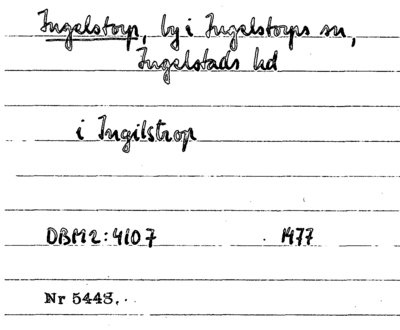 Ingelstorp, by i Ingelstorps sn,
Ingelstads hd
i Ingilstrop
DBM2:4107 1477
Nr 5448.